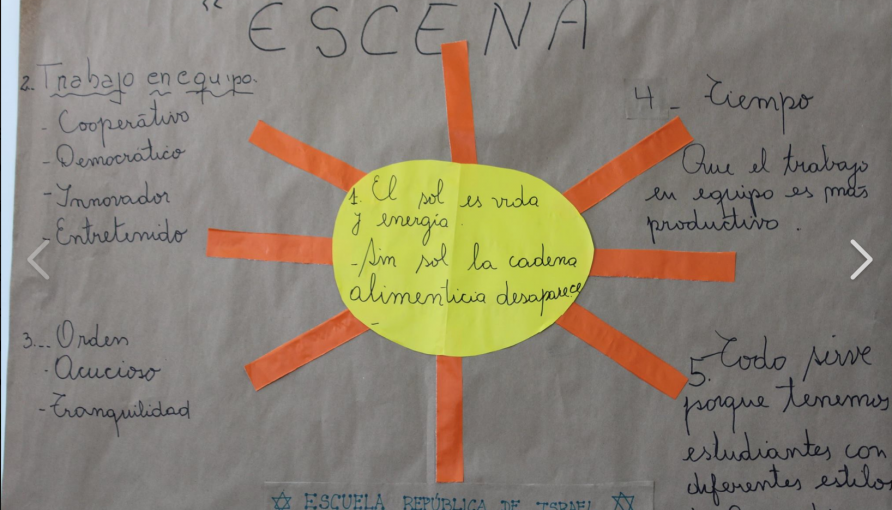 ESCENA
2. Trabajo en equipo.
- Cooperativo
- Democrático
- Innovador
- Entretenido
3... Orden
· Acucioso
- Tranquilidad
1. El sol es vida
y energía.
- Sin sol la cadena
alimenticia desaparece
-
4 - Tiempo
Que el trabajo
en equipo es más
productivo.
5. Todo sirve
porque tenemos
estudiantes con
diferentes estilos
ESCUELA REPÚBLICA DE ISRAEL